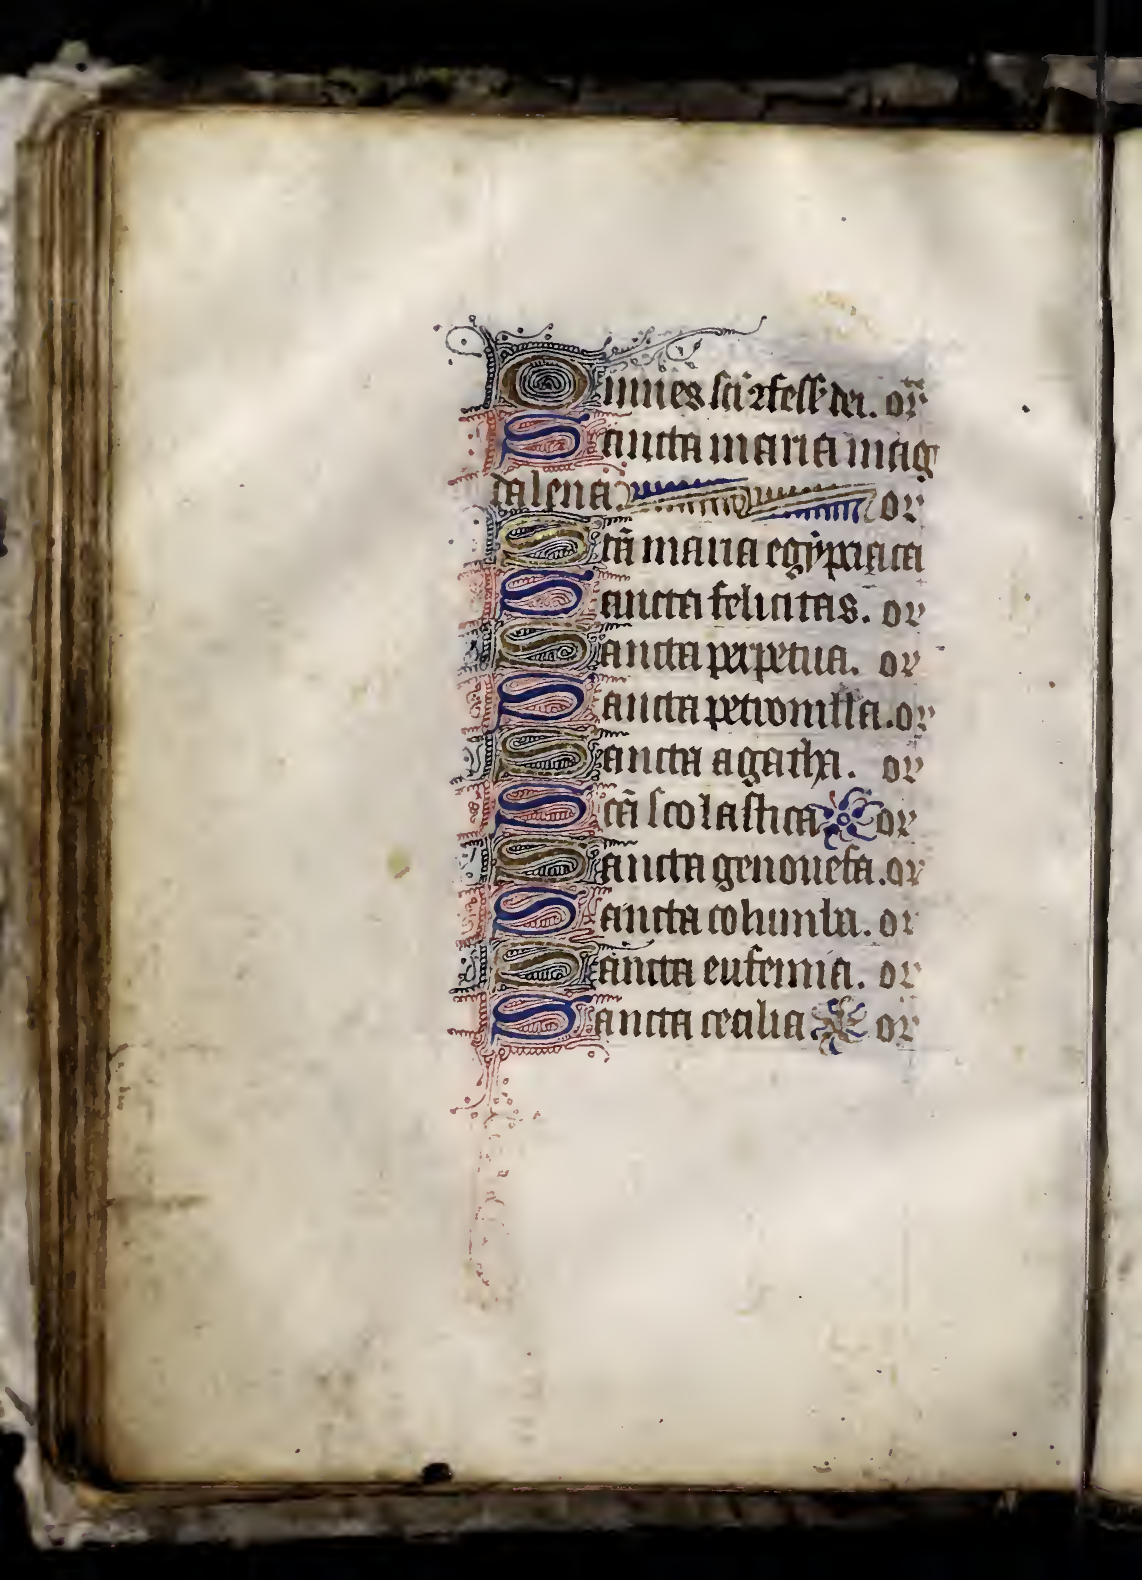 Omnes sc̃i ꝯfess̃ dei. or̃
Sancta maria mag
dalena. or
Sc̃a maria egypciaca
Sancta felicitas. or
Sancta perpetua. or
Sancta petronilla. or
Sancta agatha. or
Sc̃a scolastica or
Sancta genouefa. or
Sancta columba. or
Sancta eufemia. or
Sancta cecilia. or